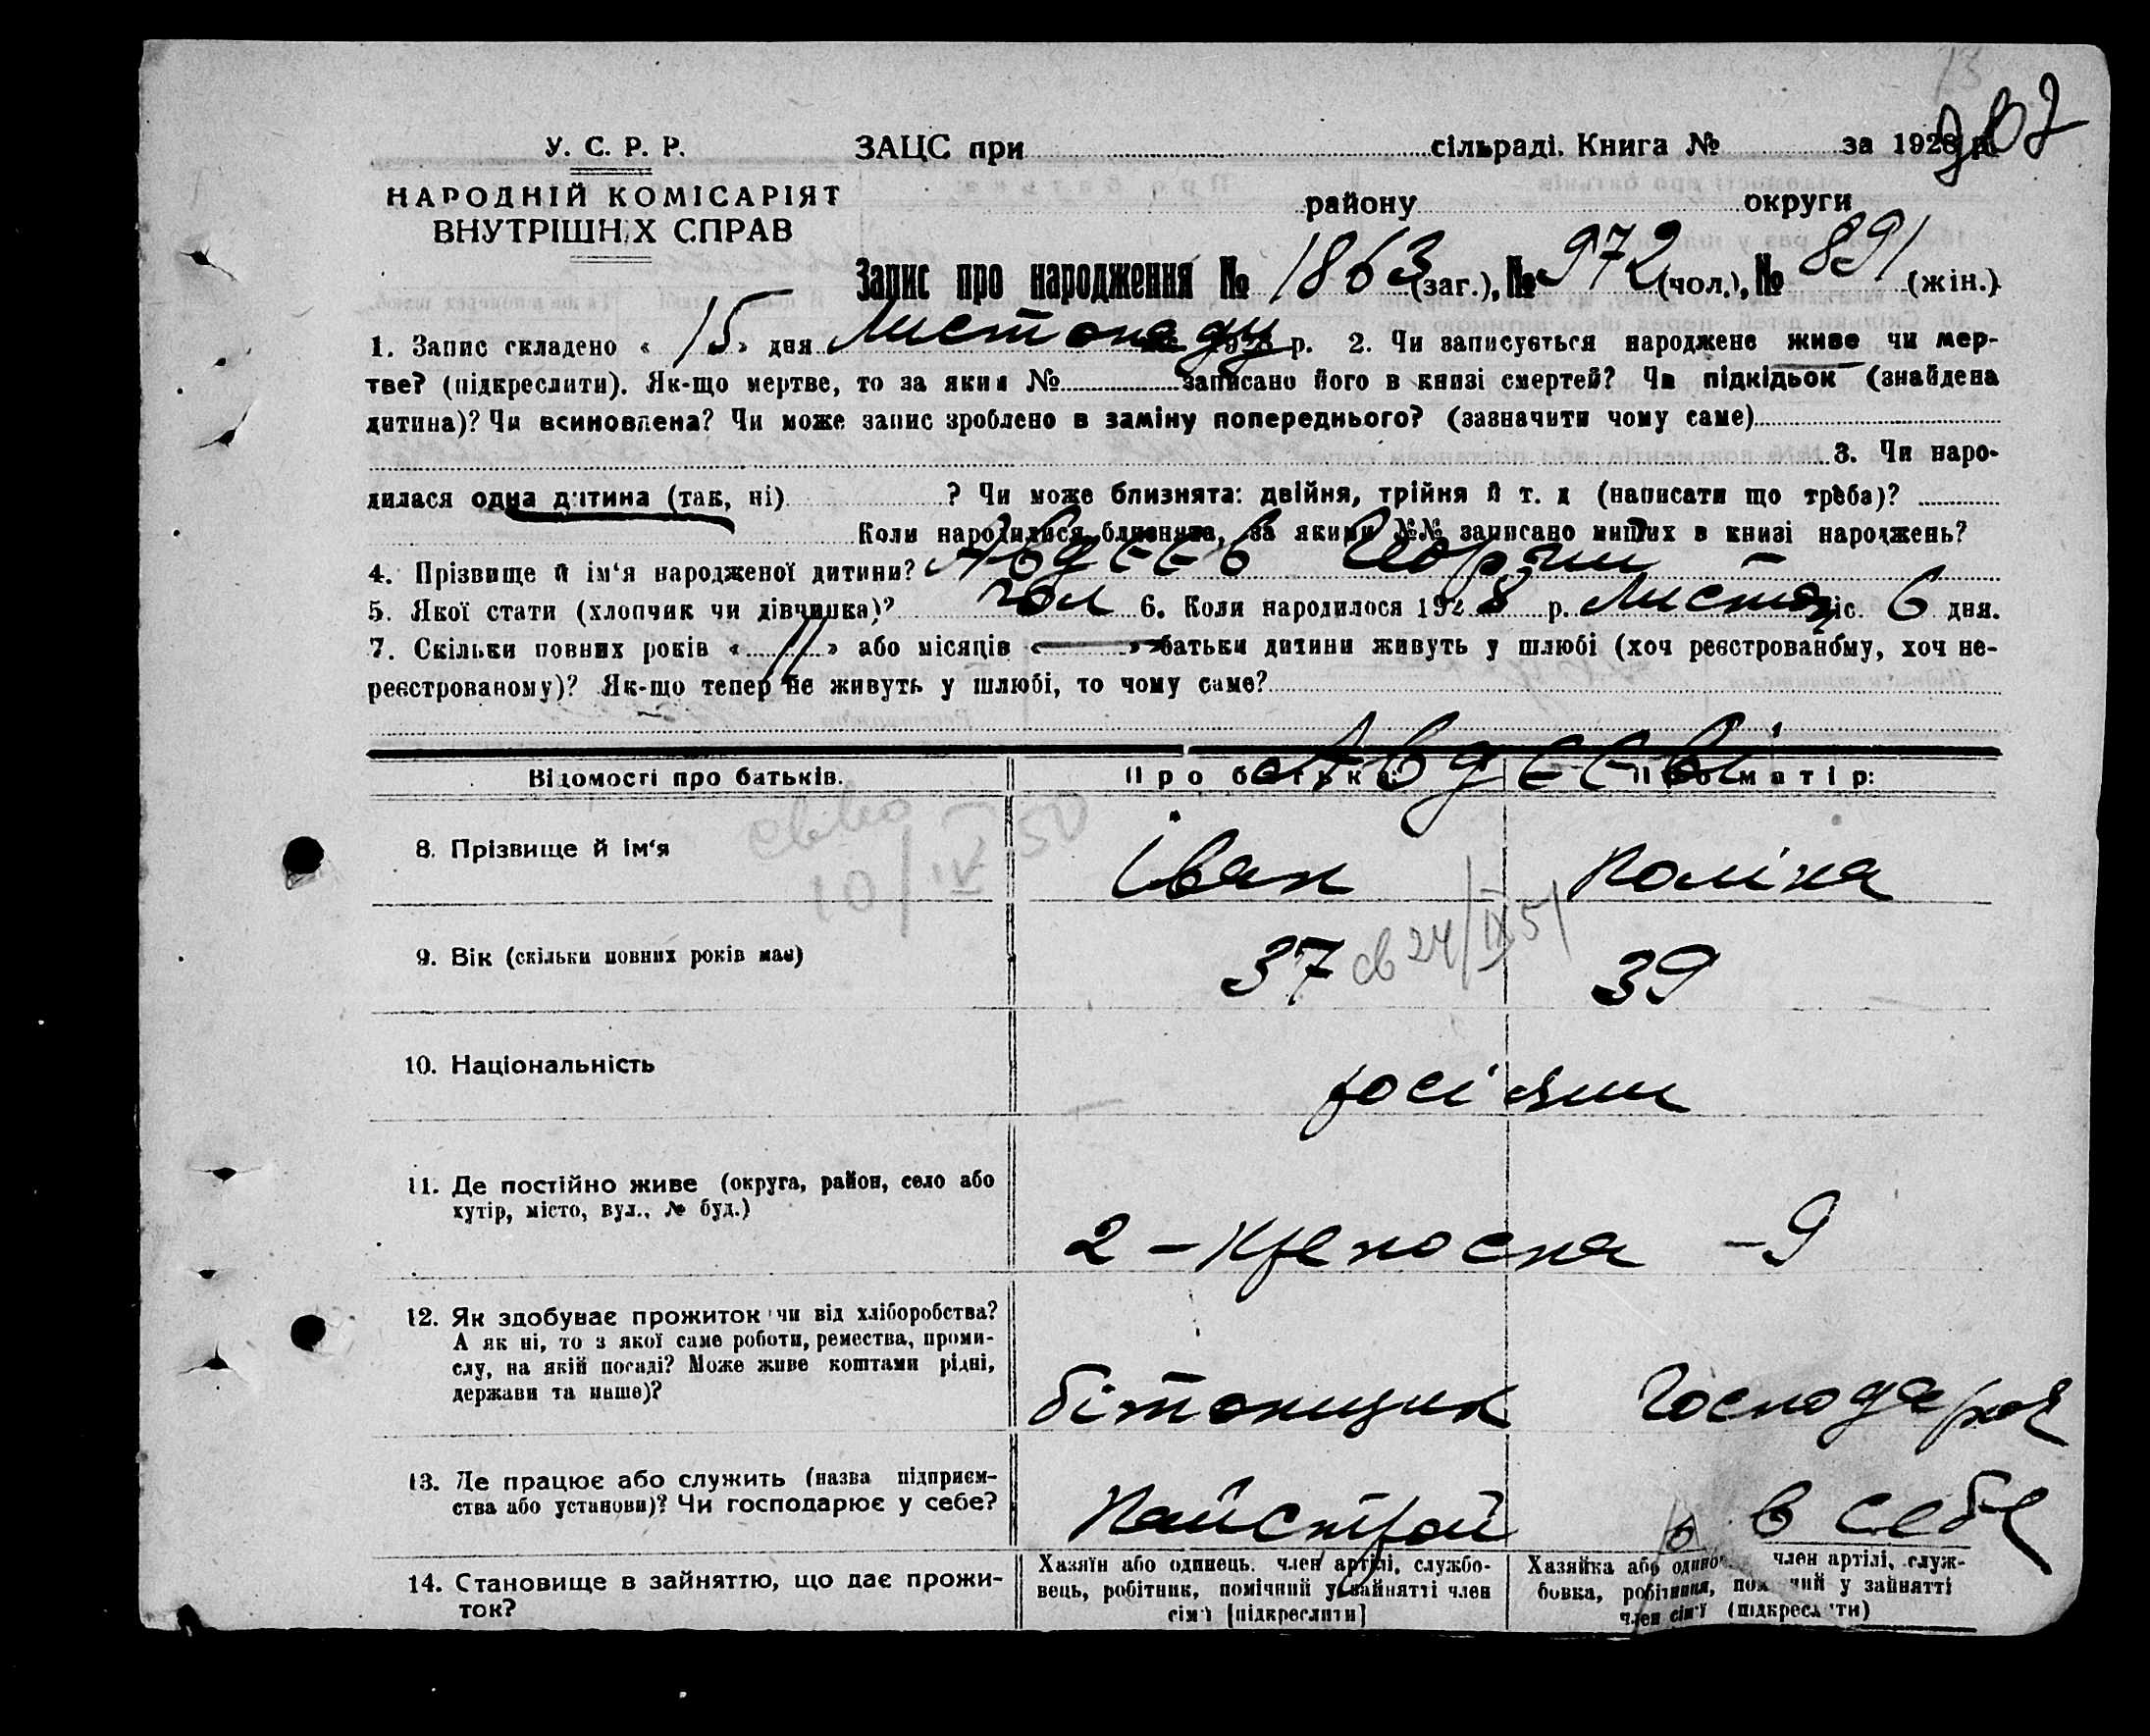 У. С. Р. Р.
НАРОДНІЙ КОМІСАРІЯТ
ВНУТРІШНІХ СПРАВ
ЗАЦС при сільраді. Книга № за 1928 р.
району округи
Запис про народження № 1863 (заг.), № 972 (чол.), № 891 (жін.)
1. Запис складено « 15 » дня Листопаду р. 2. Чи записується народжене живе чи мер-
тве? (підкреслити). Як-що мертве, то за яким № записано його в книзі смертей? Чи підкідьок (знайдена
дитина)? Чи всиновлена? Чи може запис зроблено в заміну попереднього? (зазначити чому саме)
3. Чи наро-
дилася одна дитина (так, ні) ? Чи може близнята: двійня, трійня й т. д (написати що треба)?
Коли народилися близнята, за якими №№ записано инших в книзі народжень?
4. Прізвище й ім'я народженої дитини? Авдєєв Георгий
5. Якої стати (хлопчик чи дівчинка)? чол 6. Коли народилося 1928 р. Листоп міс. 6 дня.
7. Скільки повних років « 11 » або місяців « — » батьки дитини живуть у шлюбі (хоч реєстрованому, хоч не-
реєстрованому)? Як-що тепер не живуть у шлюбі, то чому саме?
Авдєєві
Відомості про батьків. Про батька: Про матір:
8. Прізвище й ім'я Іван Поліна
10/IV 50
9. Вік (скільки повних років має) 37 39
св 24/IX 51
10. Національність росіяни
11. Де постійно живе (округа, район, село або
хутір, місто, вул., № буд.)
2 - Крепосна - 9
12. Як здобуває прожиток чи від хліборобства?
А як ні, то з якої саме роботи, ремества, проми-
слу, на якій посаді? Може живе коштами рідні,
держави та инше)?
бітонщик Господарка
13. Де працює або служить (назва підприєм-
ства або установи)? Чи господарює у себе?
Пайстрой в себе
14. Становище в зайняттю, що дає прожи-
ток?
Хазяїн або одинець, член артілі, службо-
вець, робітник, помічний у зайнятті член
сім'ї [підкреслити]
Хазяйка або одинока, член артілі, служ-
бовка, робітниця, помічний у зайнятті
член сім'ї (підкреслити)